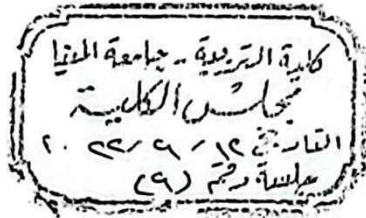 كلية التربية - جامعة المنيا
مجلس الكلية
التاريخ ١٢ / ٩ / ٢٠٢٢
جلسة رقم (٢٩)